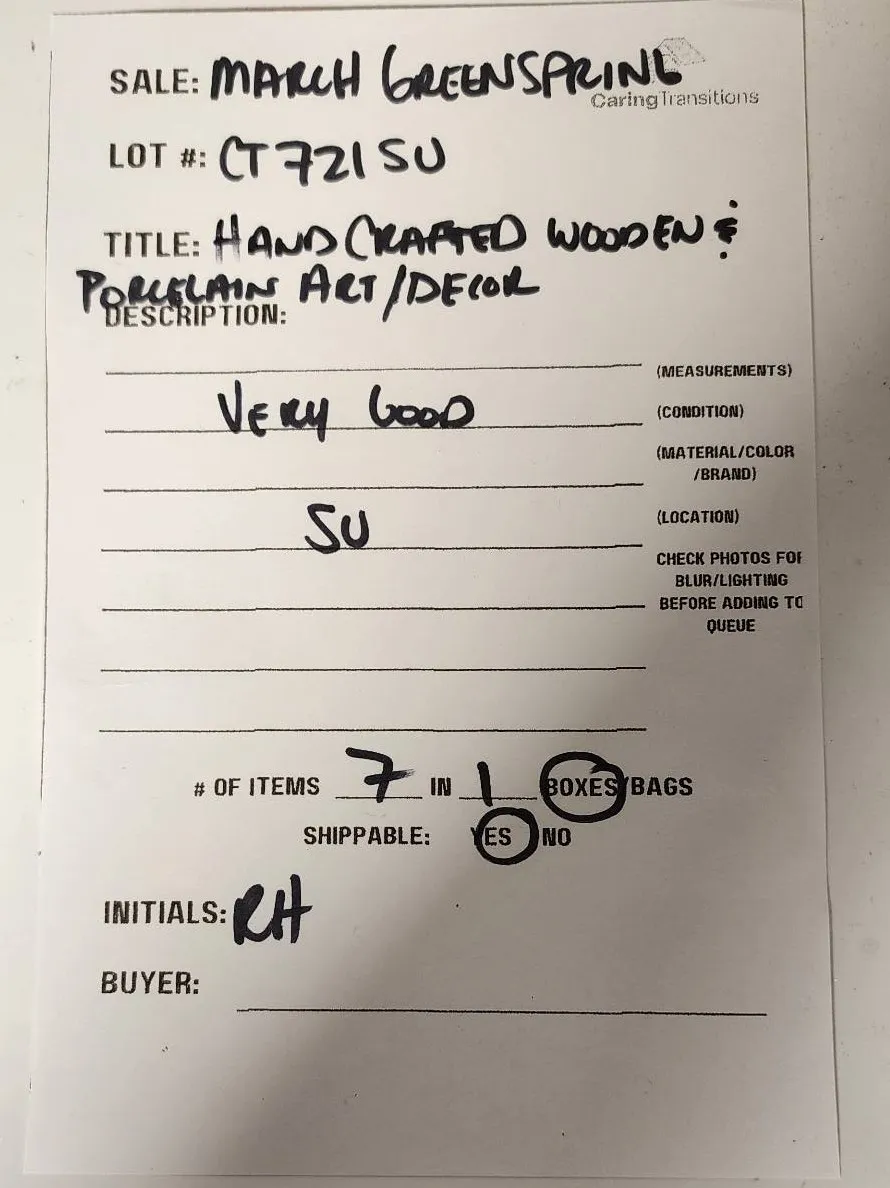 SALE: MARCH GREENSPRING
CaringTransitions
LOT #: CT721SU
TITLE: HANDCRAFTED WOODEN &
PORCELAIN ART/DECOR
DESCRIPTION:
(MEASUREMENTS)
VERY GOOD (CONDITION)
(MATERIAL/COLOR
/BRAND)
SU (LOCATION)
CHECK PHOTOS FOR
BLUR/LIGHTING
BEFORE ADDING TO
QUEUE
# OF ITEMS 7 IN 1 BOXES/BAGS
SHIPPABLE: YES NO
INITIALS: RH
BUYER: